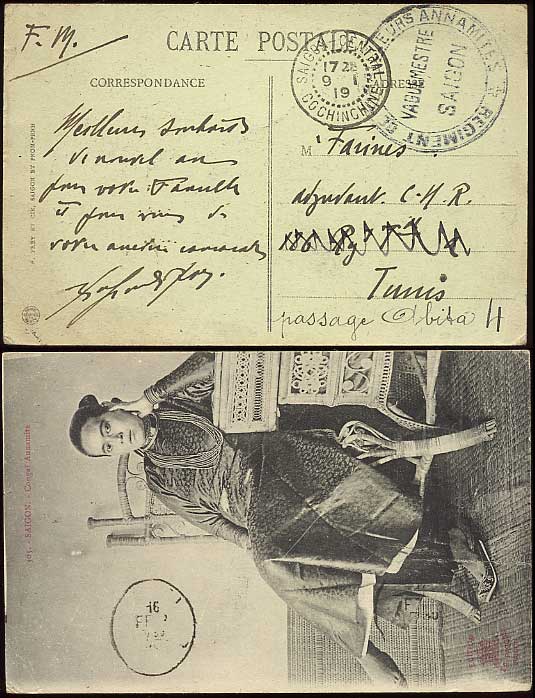 F. M.
CARTE POSTALE
CORRESPONDANCE
ADRESSE
SAIGON CENTRAL
17 28
9 1
19
COCHINCHINE
TIRAILLEURS ANNAMITES
VAGUEMESTRE
SAIGON
REGIMENT DE
Meilleurs souhaits
de nouvel an
pour votre famille
et pour vous de
votre ancien camarade
M Farines
adjudant C.H.R.
Tunis
passage Obira 4
F. VREY ET CIE, SAIGON ET PNOM-PENH
SAIGON. - Congaï Annamite
16